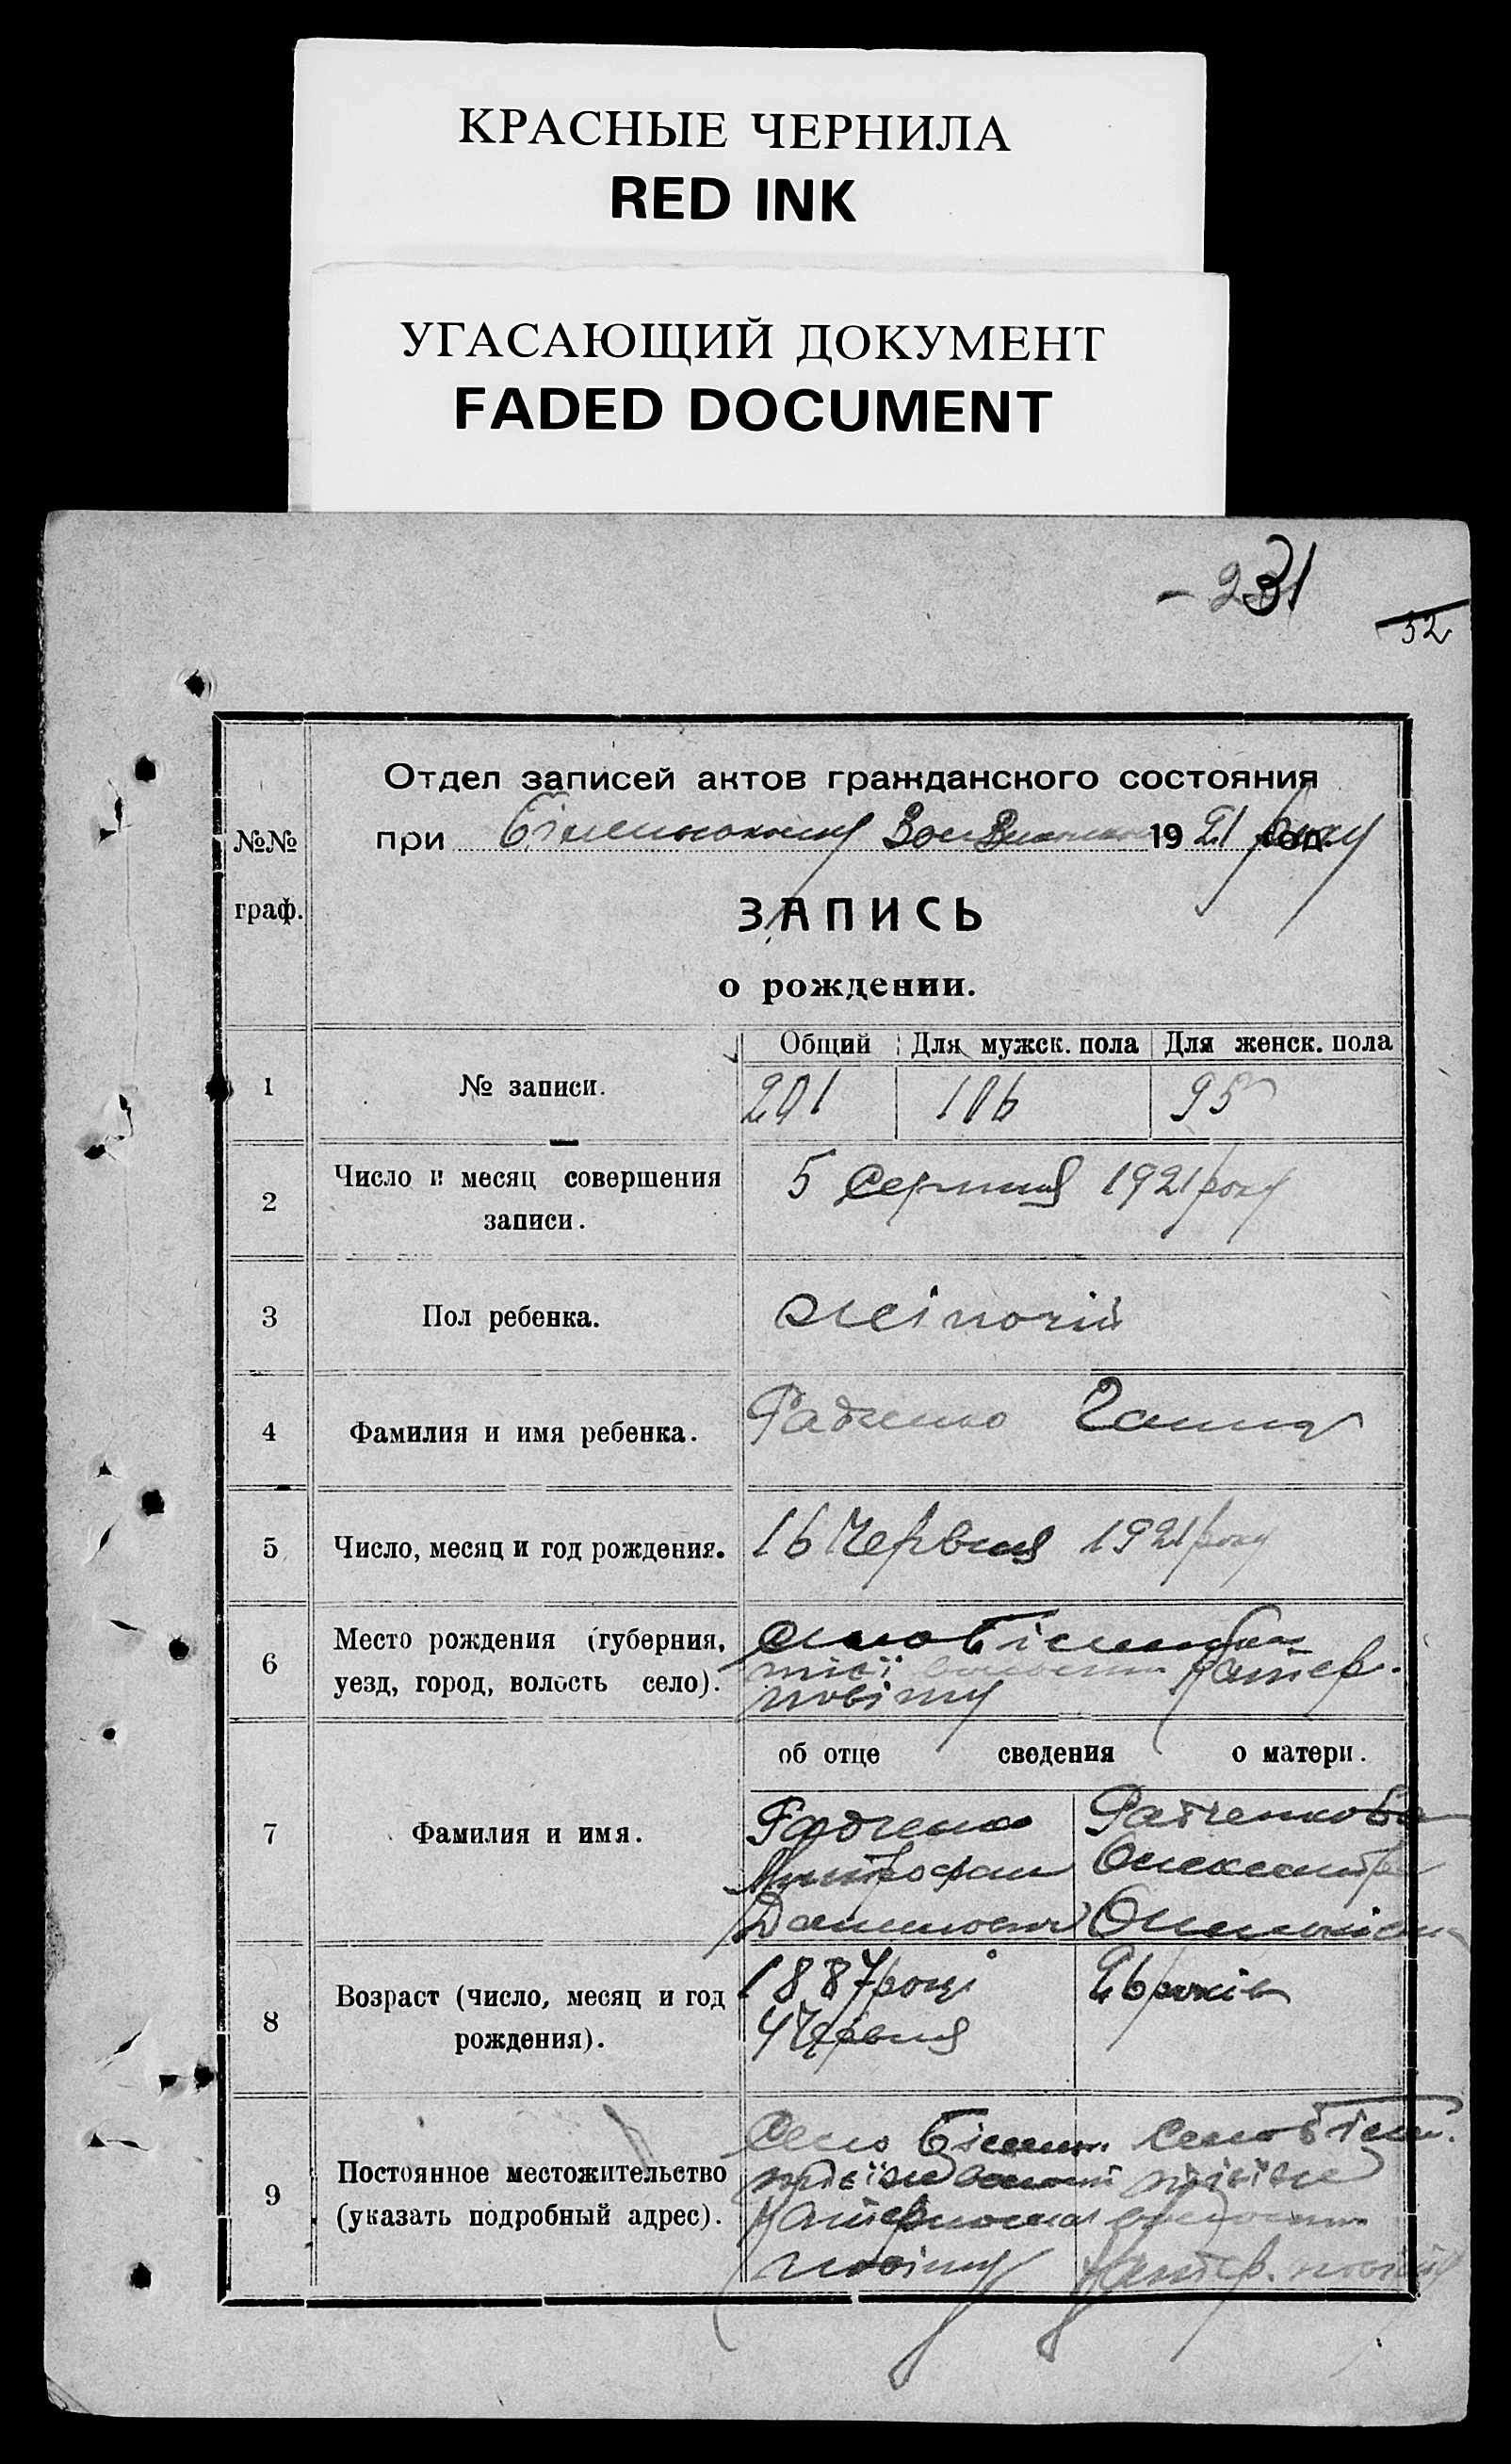 КРАСНЫЕ ЧЕРНИЛА
RED INK
УГАСАЮЩИЙ ДОКУМЕНТ
FADED DOCUMENT
- 231
52
Отдел записей актов гражданского состояния
при 1921 року год.
№№
граф.
ЗАПИСЬ
о рождении.
Общий Для мужск. пола Для женск. пола
1 № записи. 201 106 95
2 Число и месяц совершения
записи. 5 Серпня 1921 року
3 Пол ребенка. жіночий
4 Фамилия и имя ребенка. Радченко Ганна
5 Число, месяц и год рождения. 16 Червня 1921 року
6 Место рождения (губерния,
уезд, город, волость село). село
повіту
об отце сведения о матери.
7 Фамилия и имя. Радченко Радченкова
Митрофан Олександра
8 Возраст (число, месяц и год
рождения). 1887 році 26 років
4 Червня
9 Постоянное местожительство
(указать подробный адрес). Село село
повіту